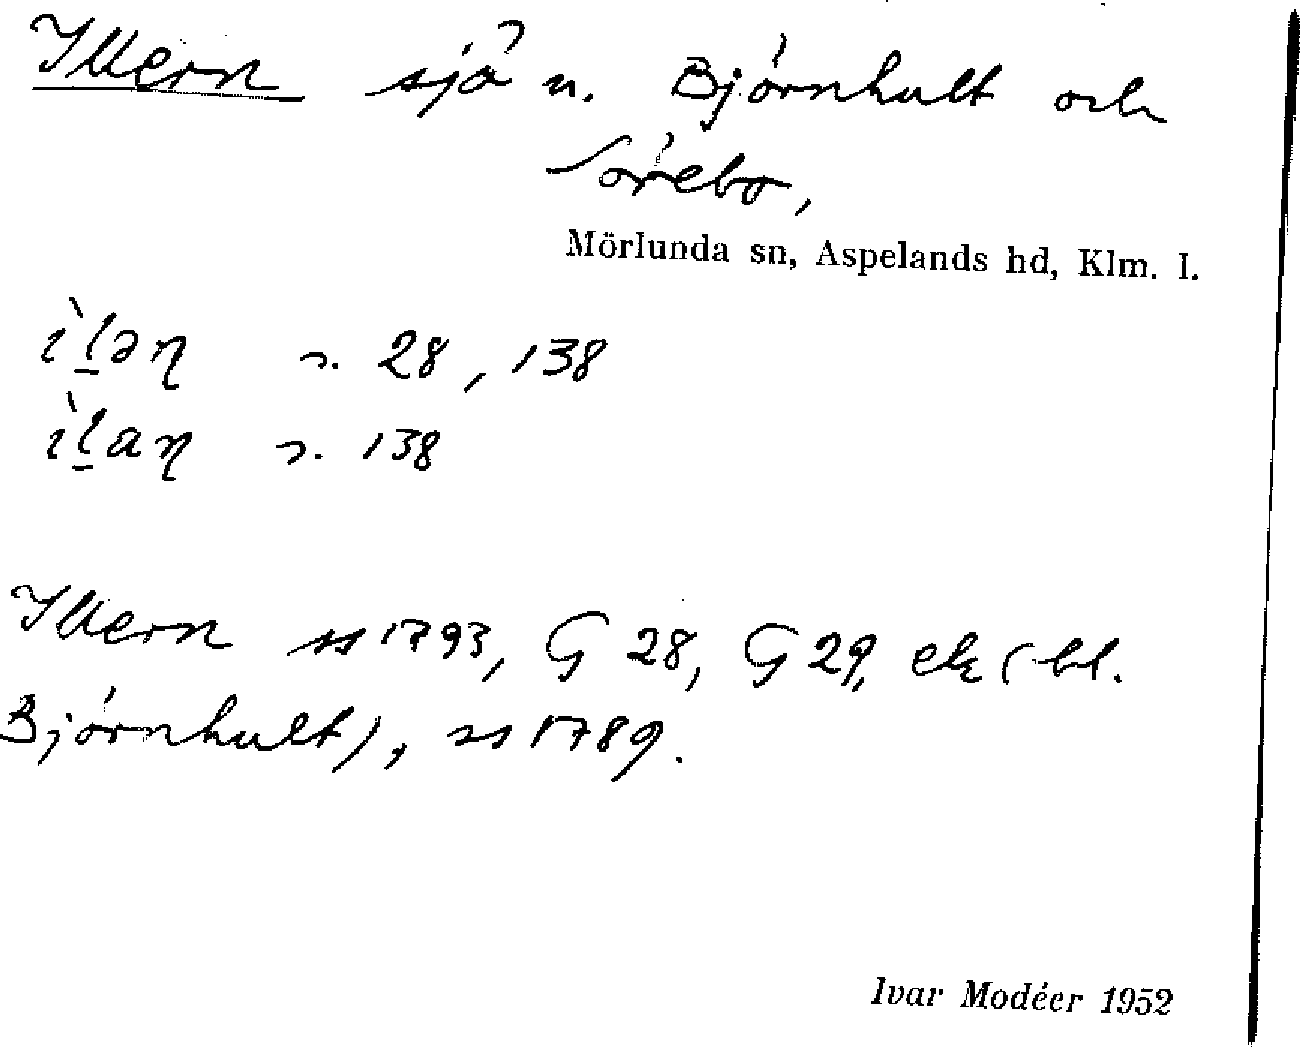 Illern sjö n. Björnhult och
Sörebo,
Mörlunda sn, Aspelands hd, Klm. l.
ìl̠əɳ s. 28, 138
ìl̠aɳ s. 138
Illern ss 1793, G 28, G 29, ek (bl.
Björnhult), ss 1789.
Ivar Modéer 1952